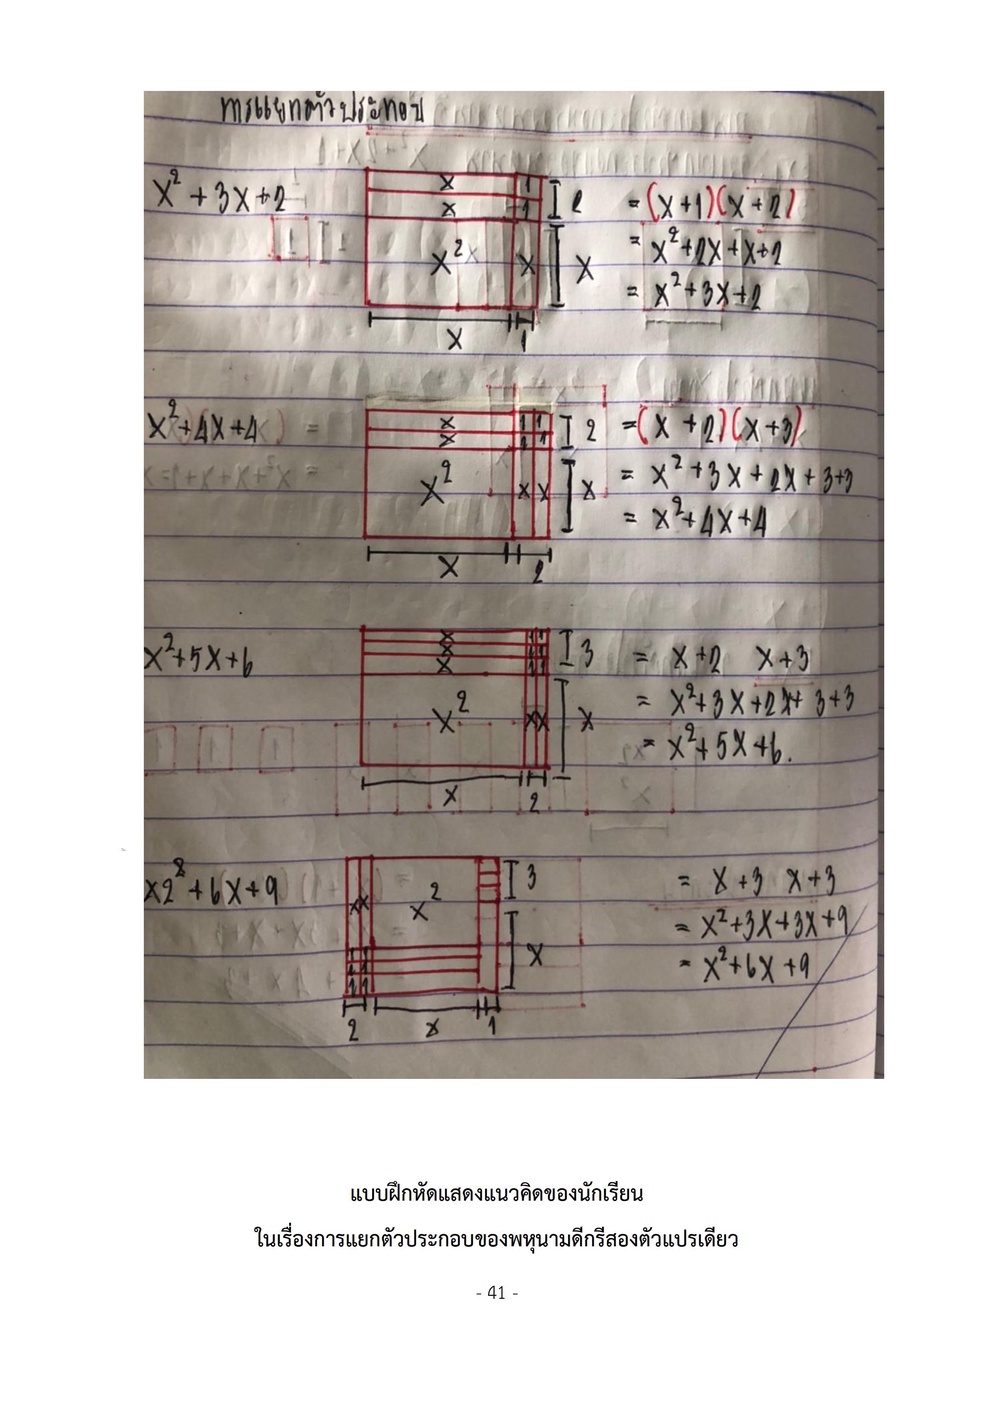 การแยกตัวประกอบ
x² + 3x + 2
x
1
x
1
2
x²
x
x
x
1
= (x + 1)(x + 2)
= x² + 2x + x + 2
= x² + 3x + 2
x² + 4x + 4 =
x
1 1
x
1 1
2
x²
x x
x
x
2
= (x + 2)(x + 3)
= x² + 3x + 2x + 3+3
= x² + 4x + 4
x² + 5x + 6
x
1 1
x
1 1
x
1 1
3
x²
x x
x
x
2
= x + 2 x + 3
= x² + 3x + 2x + 3+3
= x² + 5x + 6.
x2² + 6x + 9
x x
x²
3
x
1 1
1 1
1 1
2
x
1
= x + 3 x + 3
= x² + 3x + 3x + 9
= x² + 6x + 9
แบบฝึกหัดแสดงแนวคิดของนักเรียน
ในเรื่องการแยกตัวประกอบของพหุนามดีกรีสองตัวแปรเดียว
- 41 -